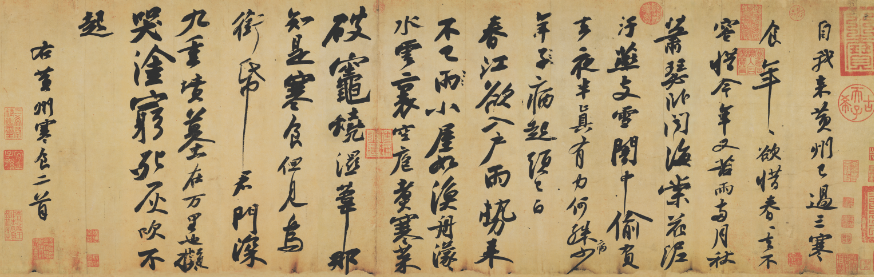 自我來黃州已過三寒
食年〻欲惜春〻去不
容惜今年又苦雨兩月秋
蕭瑟臥聞海棠花泥
汙燕支雪闇中偷負
去夜半真有力何殊少
病
年子病起頭已白
春江欲入戶雨勢來
不已雨小屋如漁舟濛〻
水雲裏空庖煮寒菜
破竈燒濕葦那
知是寒食但見烏
銜帋君門深
九重墳墓在万里也擬
哭塗窮死灰吹不
起
右黃州寒食二首